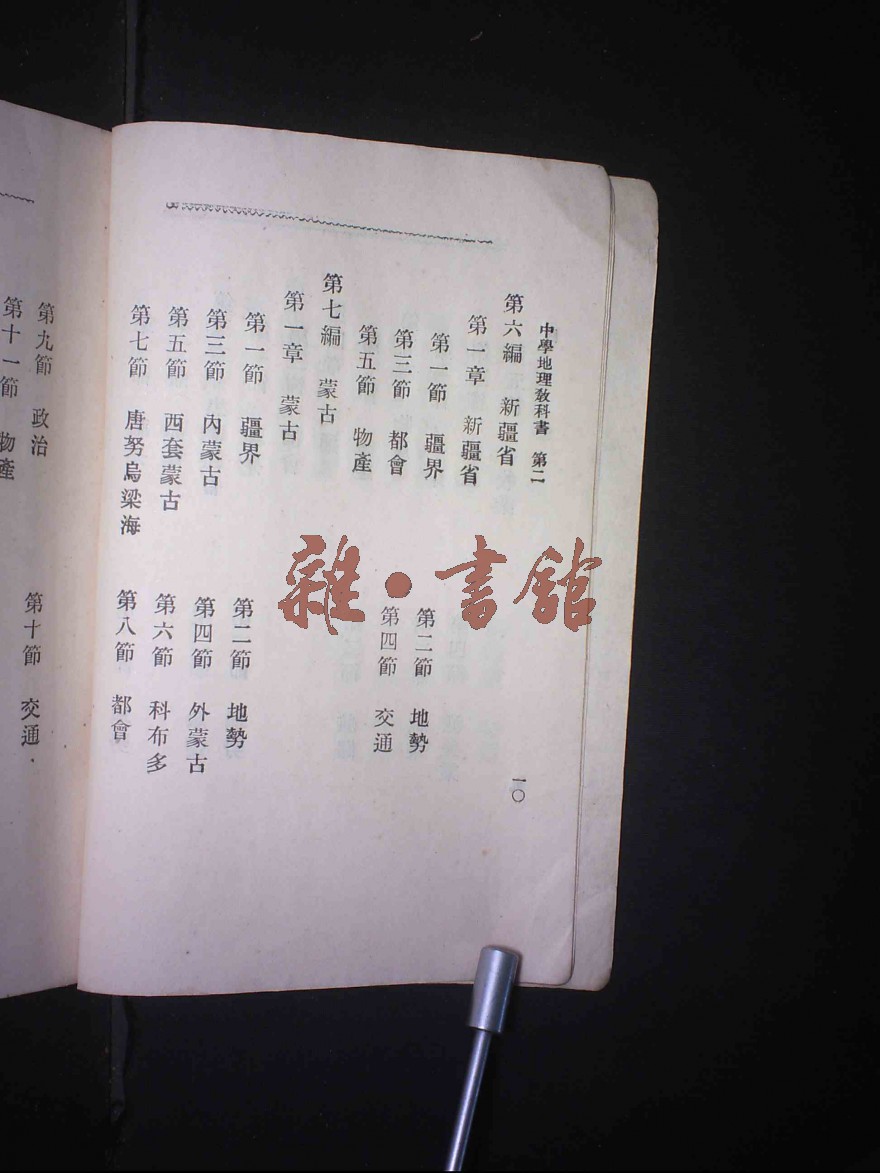 中學地理敎科書 第二
一〇
第六編 新疆省
第一章 新疆省
第一節 疆界
第二節 地勢
第三節 都會
第四節 交通
第五節 物產
第七編 蒙古
第一章 蒙古
第一節 疆界
第二節 地勢
第三節 內蒙古
第四節 外蒙古
第五節 西套蒙古
第六節 科布多
第七節 唐努烏梁海
第八節 都會
第九節 政治
第十節 交通
第十一節 物產
雜·書館